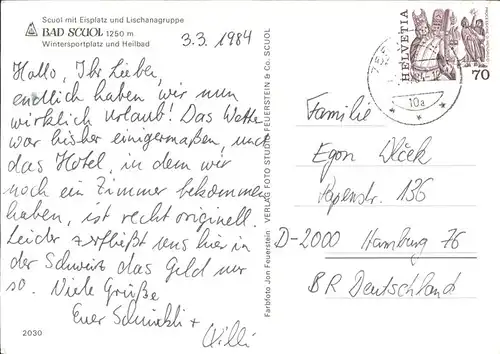 Scuol mit Eisplatz und Lischanagruppe
BAD SCUOL 1250 m
Wintersportplatz und Heilbad
3.3.1984
Hallo, Ihr Lieben,
endlich haben wir nun
wirklich Urlaub! Das Wetter
war bisher einigermaßen, und
das Hotel, in dem wir
noch ein Zimmer bekommen
haben, ist recht originell.
Leider zerfließt uns hier in
der Schweiz das Geld nur
so. Viele Grüße
Euer +
Willi
2030
Farbfoto Jon Feuerstein VERLAG FOTO STUDIO FEUERSTEIN & Co. SCUOL
HELVETIA
70
10a
Familie
Egon Wlček
Papenstr. 136
D-2000 Hamburg 76
BR Deutschland